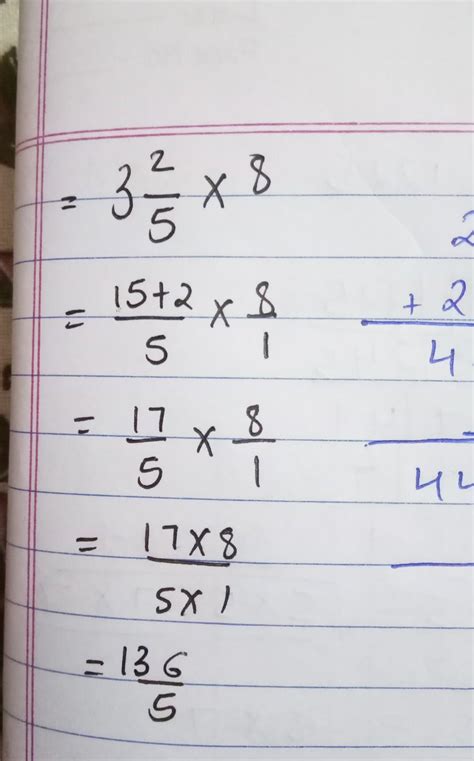 = 3 2/5 × 8
= 15+2/5 × 8/1
= 17/5 × 8/1
= 17×8/5×1
= 136/5
2
+ 2
4
44